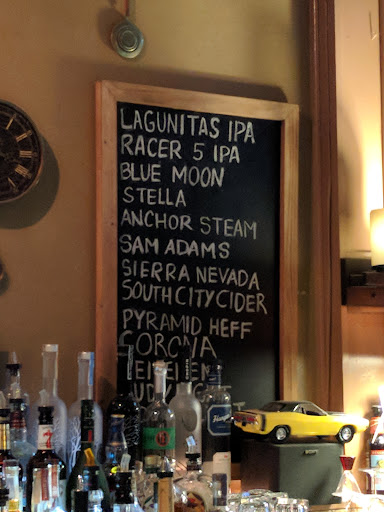 LAGUNITAS IPA
RACER 5 IPA
BLUE MOON
STELLA
ANCHOR STEAM
SAM ADAMS
SIERRA NEVADA
SOUTH CITY CIDER
PYRAMID HEFF
CORONA